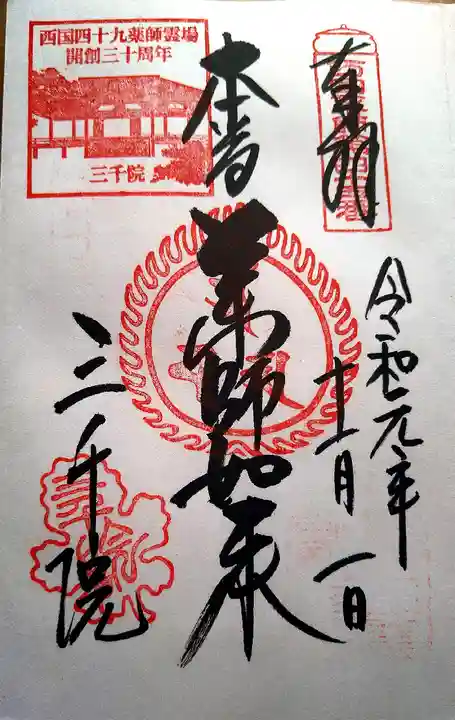 奉拝
令和元年
十一月一日
本尊
薬師如来
三千院
西国四十九薬師霊場
開創三十周年
三千院